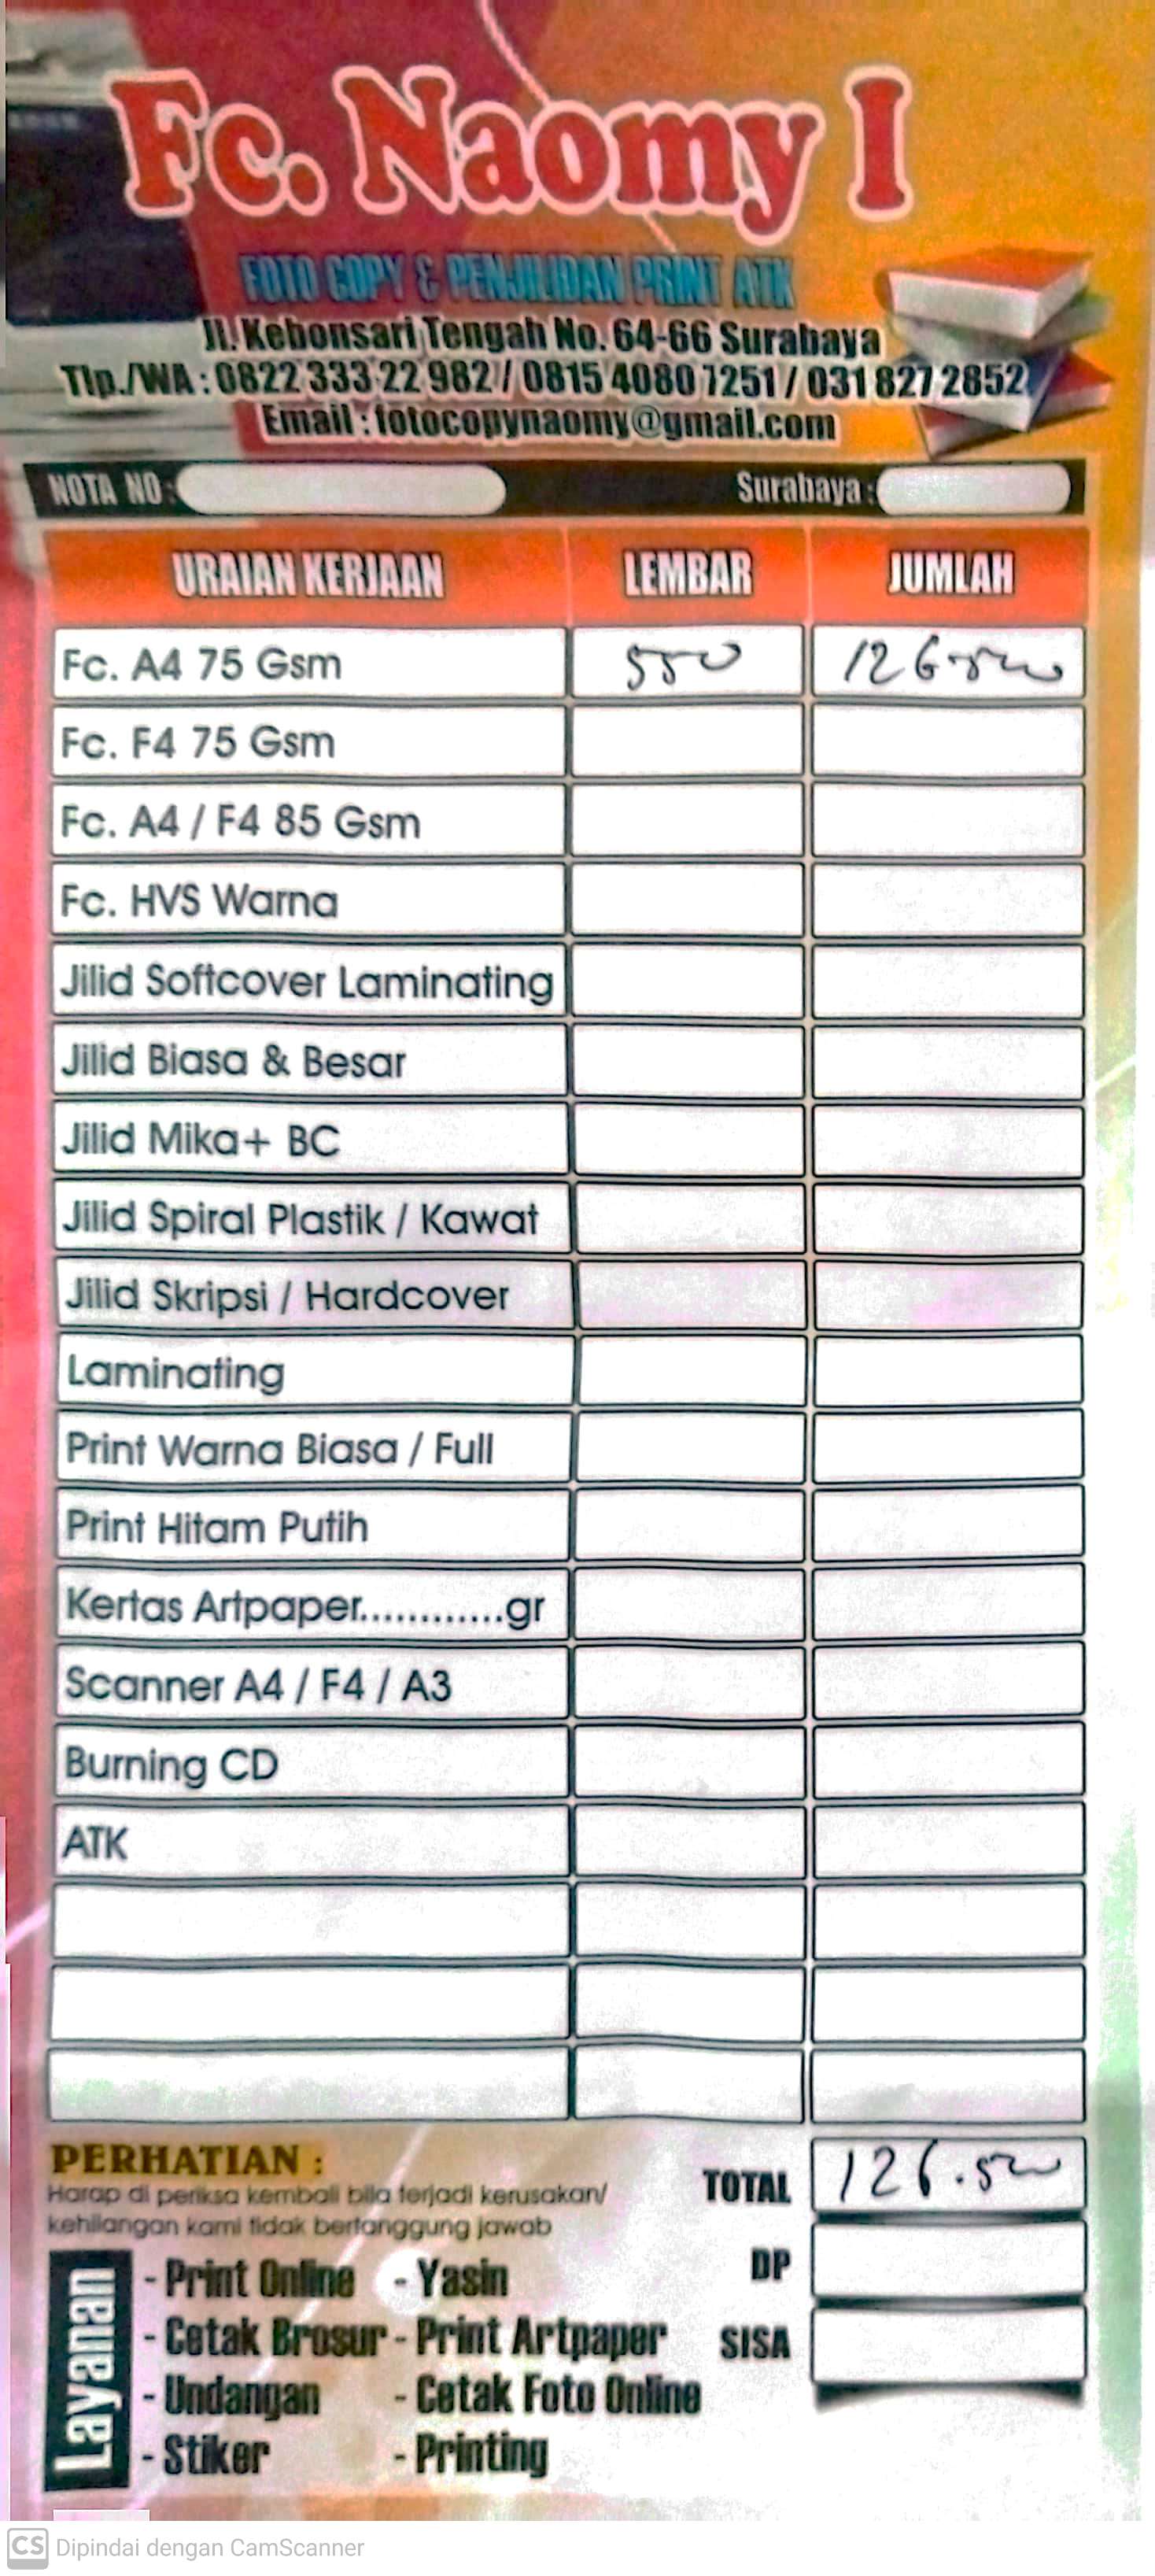 Fc. Naomy I
FOTO COPY & PENJILIDAN PRINT ATK
Jl. Kebonsari Tengah No. 64-66 Surabaya
Tlp./WA : 0822 333 22 982 / 0815 4080 7251 / 031 827 2852
Email : fotocopynaomy@gmail.com
NOTA NO : Surabaya :
URAIAN KERJAAN LEMBAR JUMLAH
Fc. A4 75 Gsm 550 126.500
Fc. F4 75 Gsm
Fc. A4 / F4 85 Gsm
Fc. HVS Warna
Jilid Softcover Laminating
Jilid Biasa & Besar
Jilid Mika+ BC
Jilid Spiral Plastik / Kawat
Jilid Skripsi / Hardcover
Laminating
Print Warna Biasa / Full
Print Hitam Putih
Kertas Artpaper............gr
Scanner A4 / F4 / A3
Burning CD
ATK
PERHATIAN :
Harap di periksa kembali bila terjadi kerusakan/
kehilangan kami tidak bertanggung jawab
TOTAL 126.500
DP
SISA
Layanan
- Print Online - Yasin
- Cetak Brosur - Print Artpaper
- Undangan - Cetak Foto Online
- Stiker - Printing
CS Dipindai dengan CamScanner